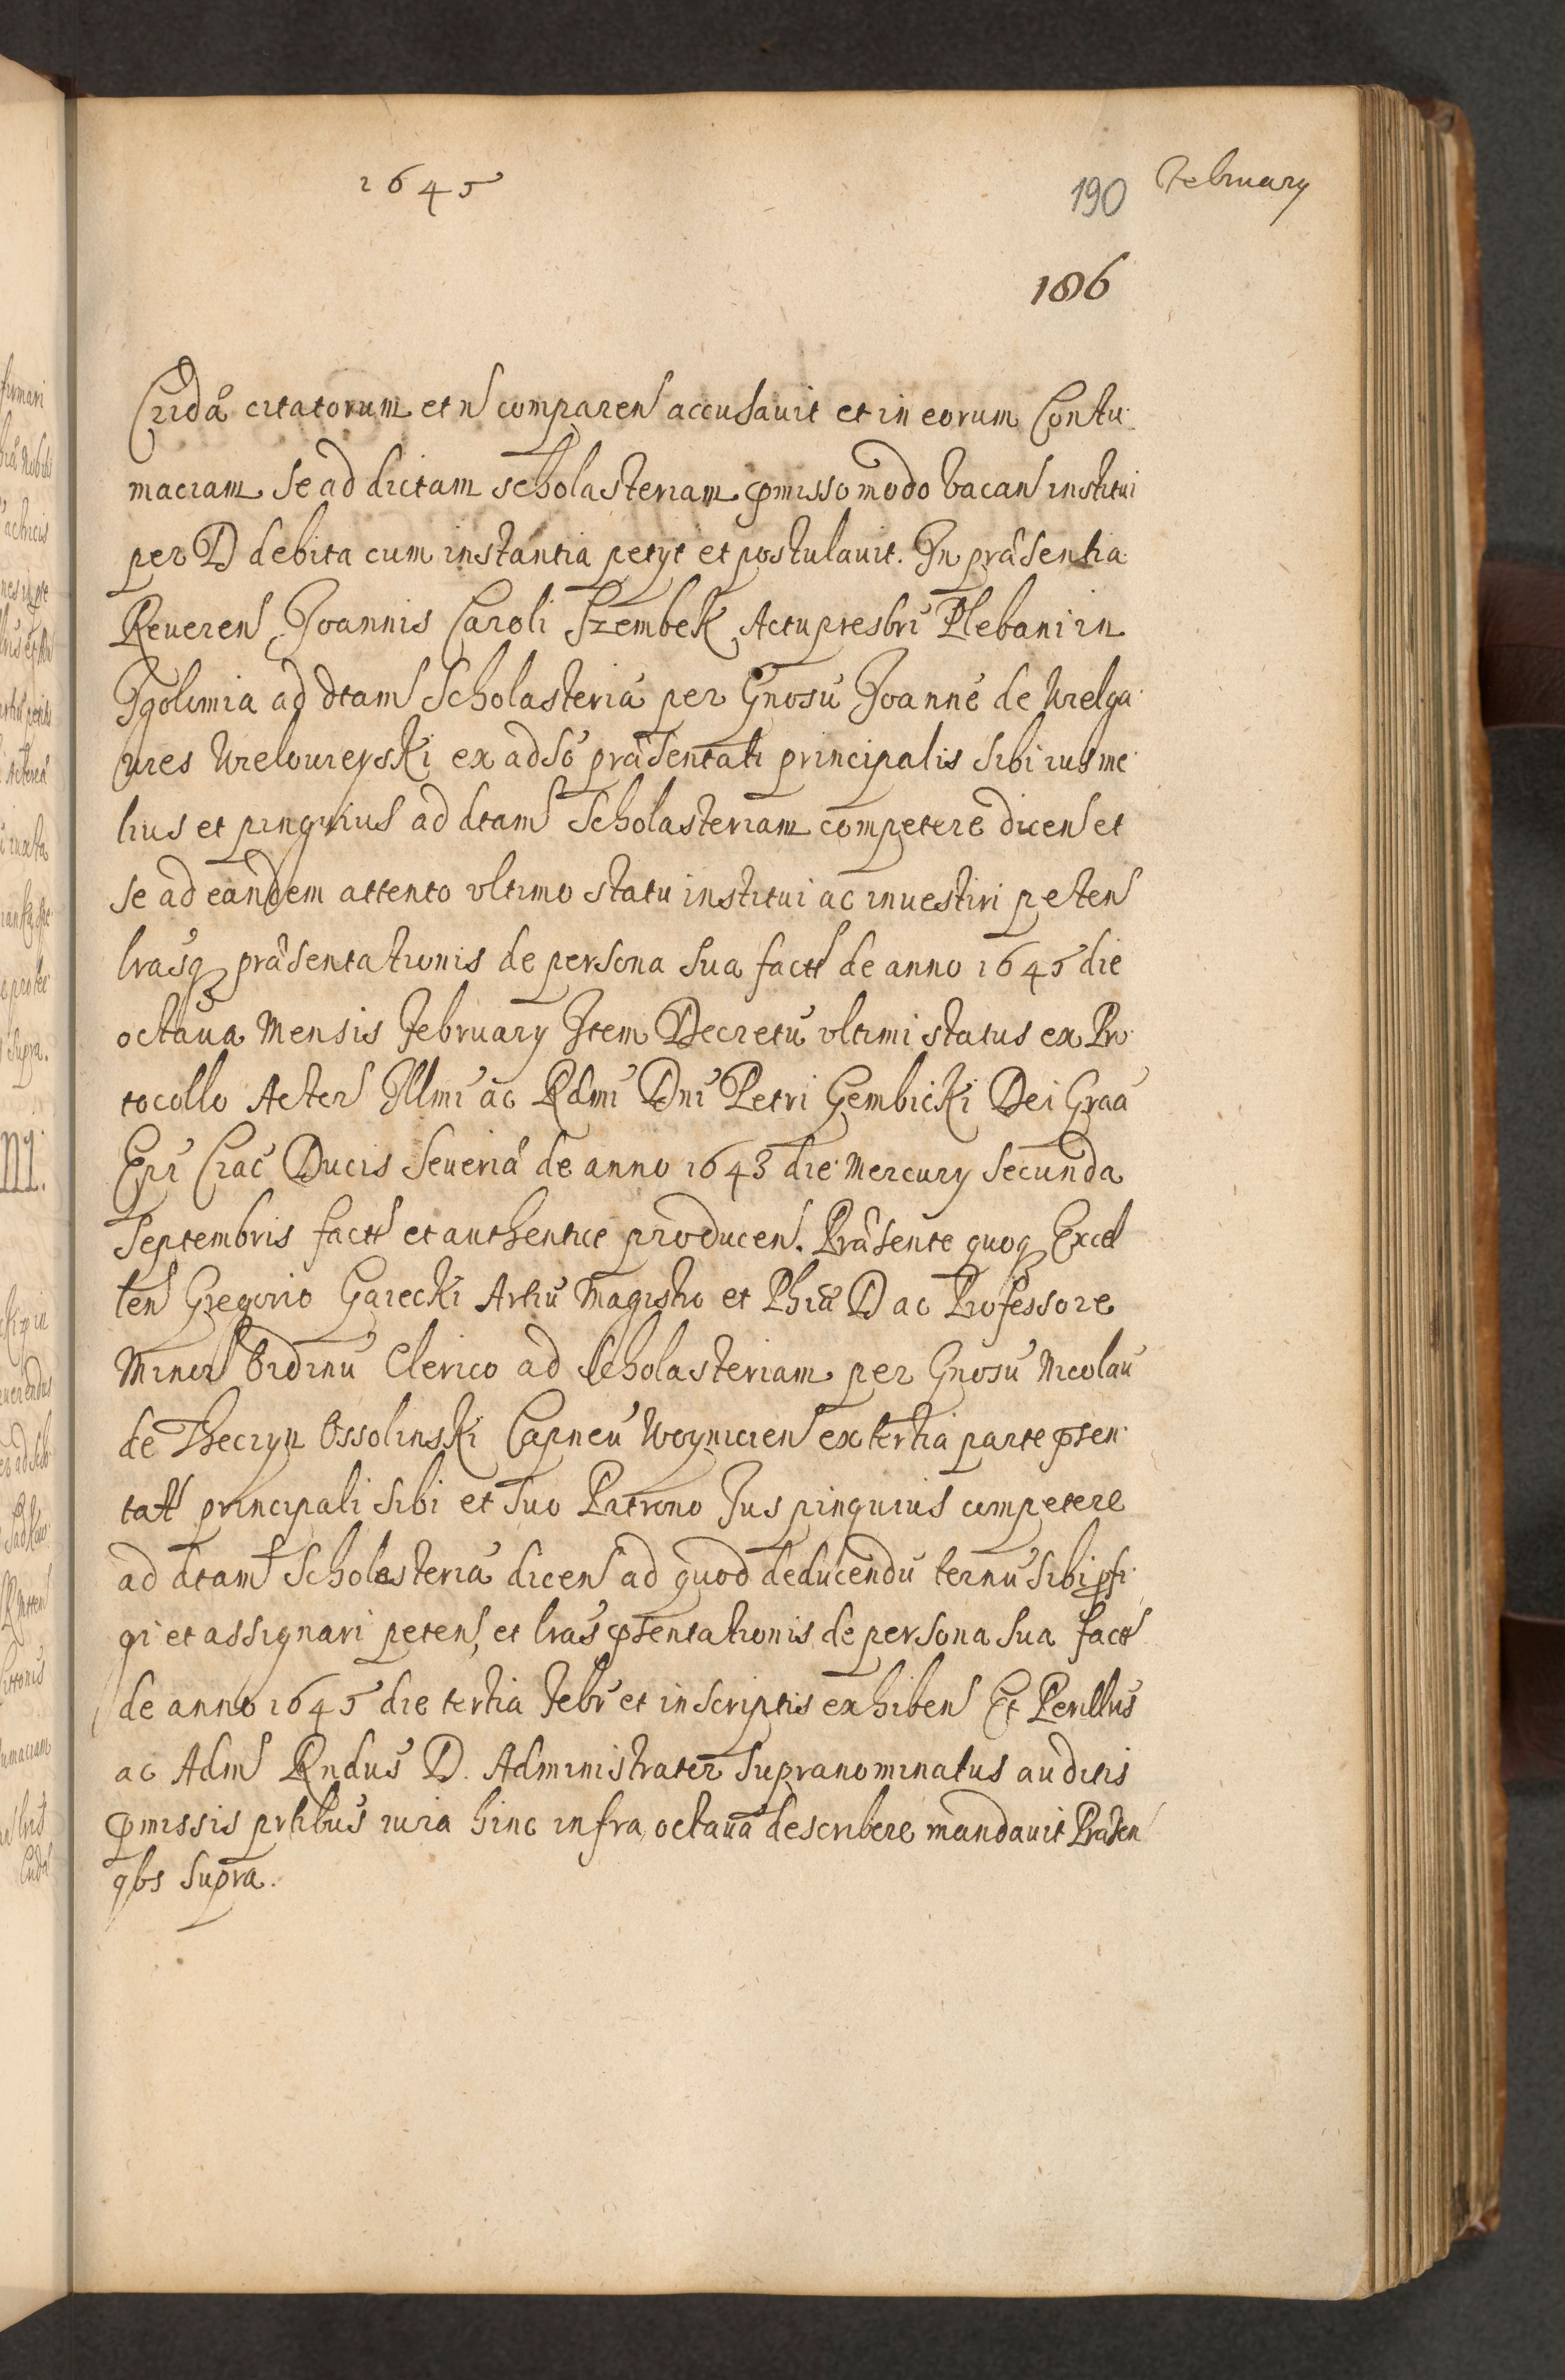 1645
190
February
186
Cridā citatorum et n comparen accusauit et in eorum Contu
maciam se ad dictam scholasteriam pmisso modo vacan institui
per D debita cum instantia petyt et postulauit. In præsentia
Reueren Joannis Caroli Szembek Actu presbri Plebani in
Igolomia ad dtam Scholasteriā per Gnosū Joannē de Wielga
wies Wielowieyski ex adso præsentati principalis sibi ius me
lius et pinguius ad dtam Scholasteriam competere dicen et
se ad eandem attento vltimo statu institui ac inuestiri peten
lrasq præsentationis de persona sua fact de anno 1645 die
octaua Mensis February Item Decretū vltimi status ex Pro
tocollo Actor Illmi ac Rdmi Dni Petri Gembicki Dei Graa
Epi Crac Ducis Seueriā de anno 1643 die Mercury Secunda
Septembris fact et authentice producen. Præsente quoq Excel
len Gregorio Garecki Artiū Magistro et Phiæ D ac Professore
Minor Ordinū Clerico ad Scholasteriam per Gnosū Nicolaū
de Theczyn Ossolinski Capneū Woynicien ex tertia parte psen
tat principali sibi et suo Patrono Jus pinguius competere
ad dtam Scholasteriā dicen ad quod deducendū ternū sibi pfi
gi et assignari peten, et lras psentationis de persona sua fact
de anno 1645 die tertia Febr et in scriptis exhiben Et Perillris
ac Adm Rndus D. Administrator supranominatus auditis
pmissis prtibus iura hinc infra octauā describere mandauit Præsen
qbs supra.